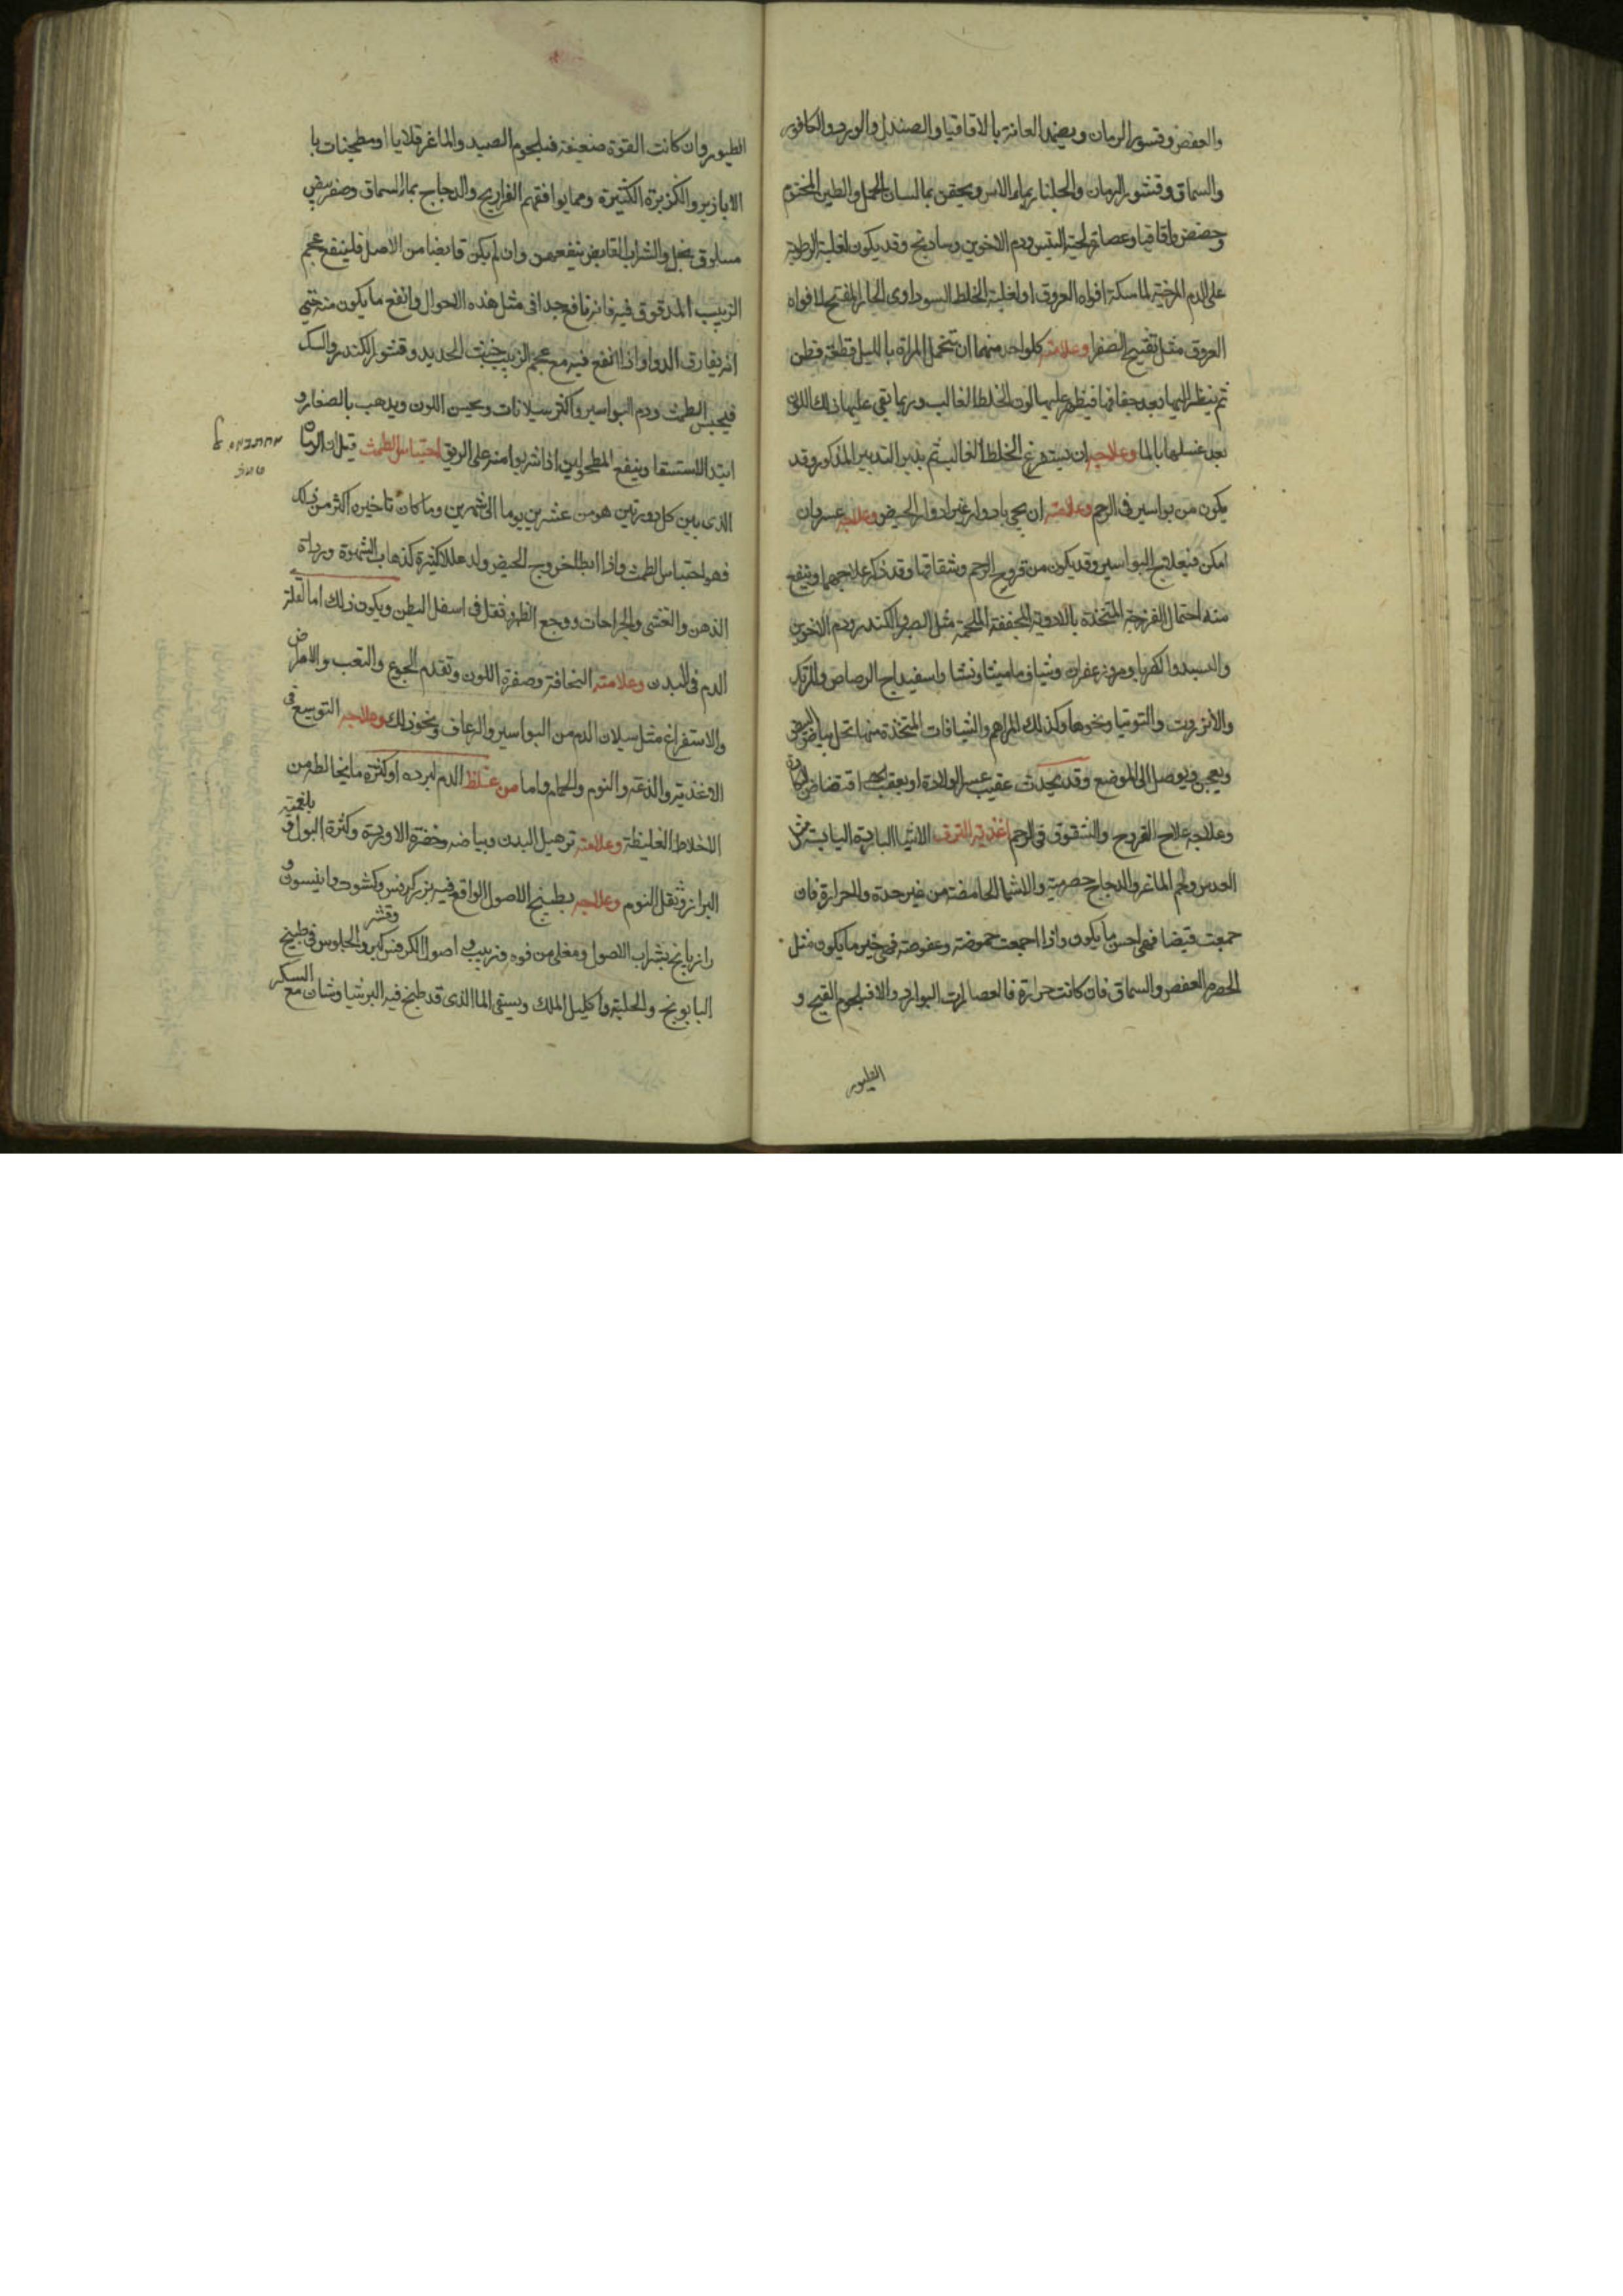 والعفص وقشور الرمان ويضمد العانة بالاقاقيا والصندل والورد والكافور
والسماق وقشور الرمان والجلنار بماء الاس ويحقن بماء لسان الحمل والطين المختوم
وحضض واقاقيا وعصارة لحية التيس ودم الاخوين وسادنج وقد يكون لغلبة الرطوبة
على الدم المرخية لماسكة افواه العروق او لغلبة الخلط السوداوى الحار المفتح لافواه
العروق مثل تفتيح الصفرا وعلامة كل واحد منهما ان تتحمل المراة بالليل قطعة قطن
ثم ينظر اليها بعد جفافها فيظهر عليها لون الخلط الغالب وربما بقى عليها ذلك اللون
بعد غسلها بالما وعلاجه ان يستفرغ الخلط الغالب ثم يدبر التدبير المذكور وقد
يكون من بواسير فى الرحم وعلامته ان يجى بادوار غير ادوار الحيض وعلاجه عسر وان
امكن فبعلاج البواسير وقد يكون من قروح الرحم وشقاقها وقد ذكر علاجهما وينفع
منه احتمال الفرزجة المتخذة بالادوية المجففة الملحمة مثل الصبر والكندر ودم الاخوين
والسبد والكهربا ومر وزعفران وشياف ماميثا ونشا واسفيداج الرصاص والمرتك
والانزروت والتوتيا ونحوها وكذلك المراهم والشيافات المتخذة منها تحل ببياض البيض
ويعجن ويوصل الى الموضع وقد يحدث عقيب عسر الولادة او بعقب افتضاض البكارة
وعلاجه علاج القروح والشقوق فى الرحم اغذية النزف الاشيا الباردة اليابسة مثل
العدس ولحم الماعز والدجاج حصرمية والاشيا الحامضة من غير حدة والحرارة فان
جمعت قبضا فهى احسن ما يكون واذا اجمعت حموضة وعفوصة فهى خير ما يكون مثل
الحصرم العفص والسماق فان كانت حرارة فالعصارات البوارد والا فبلحوم القبج و
الطيور
الطيور وان كانت القوة ضعيفة فبلحوم الصيد والماعز قلايا او مطجنات با
الابازير والكزبرة الكثيرة ومما يوافقهم الفراريج والدجاج بماء السماق وصفر بيض
مسلوق بخل والشراب القابض ينفعهن وان لم يكن قابضا من الاصل فلينقع عجم
الزبيب المدقوق فيه فانه نافع جدا فى مثل هذه الاحوال وانفع ما يكون منه حتى
انه يفارق الدوا واذا انقع فيه مع عجم الزبيب خبث الحديد وقشور الكندر والسك
فيحبس الطمث ودم البواسير واكثر سيلانات ويحسن اللون ويذهب بالصغار و
ابتدا الاستسقا وينفع المطحولين اذا شربوا منه على الريق احتباس الطمث قيل ان الزمان
الذى بين كل دورتين هو من عشرين يوما الى شهرين وما كان تاخيره اكثر من ذلك
فهو احتباس الطمث واذا ابطا خروج الحيض ولد عللا كثيرة كذهاب الشهوة ورداة
الذهن والغشى والجراحات ووجع الظهر وثقل فى اسفل البطن ويكون ذلك اما لقلة
الدم فى البدن وعلامته النحافة وصفرة اللون وتقدم الجوع والتعب والامراض
والاستفراغ مثل سيلان الدم من البواسير والرعاف ونحو ذلك وعلاجه التوسيع فى
الاغذية والدعة والنوم والحمام واما من غلظ الدم لبرده او كثرة ما يخالطه من
الاخلاط الغليظة وعلامته ترهيل البدن وبياضه وخضرة الاوردة وكثرة البول وبلغمية
البراز وثقل النوم وعلاجه بطبيخ الاصول الواقع فيه بزر كرفس وكشوث وانيسون و
رازيانج بشراب الاصول ومغلى من فوه وزبيب واصول الكرفس وقشر كبر والجلوس فى طبيخ
البابونج والحلبة واكليل الملك ويسقى الما الذى قد طبخ فيه البرشياوشان مع السكر